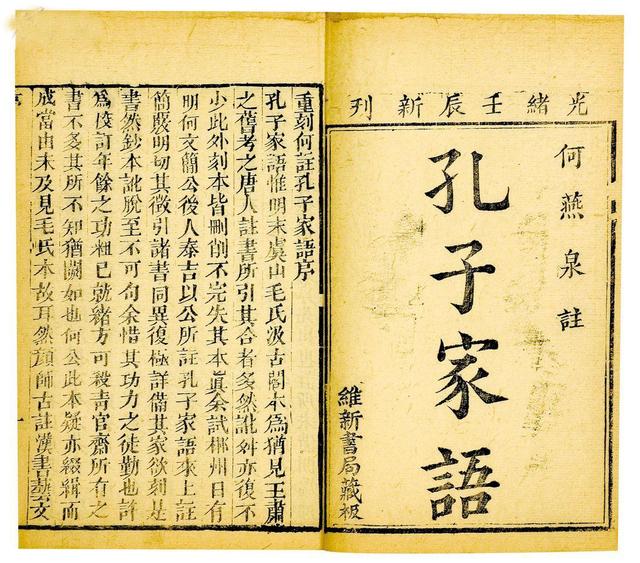 光緒壬辰新刊
何燕泉註
孔子家語
維新書局藏板
重刻何註孔子家語序
孔子家語惟明末虞山毛氏汲古閣本爲猶見王肅
之舊考之唐人註書所引其合者多然訛舛亦復不
少此外刻本皆刪削不完失其本眞余試郴州日有
明何文簡公後人泰吉以公所註孔子家語來上註
簡嚴明切其徵引諸書同異復極詳備其家欲刻是
書然鈔本訛脫至不可句余惜其功力之徒勤也許
爲校訂年餘之功粗已就緒方可殺青官齋所有之
書不多其所不知猶闕如也何公此本疑亦綴緝而
成當由未及見毛氏本故耳然顏師古註漢書藝文
序
一